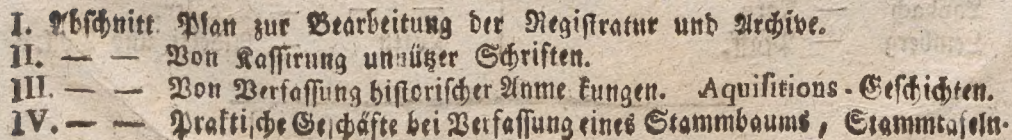 I. Abschnitt Plan zur Bearbeitung der Registratur und Archive.
II. — — Von Kassirung unnützer Schriften.
III. — — Von Verfassung historischer Anmerkungen. Aquisitions-Geschichten.
IV. — — Praktische Geschäfte bei Verfassung eines Stammbaums, Stammtafeln.